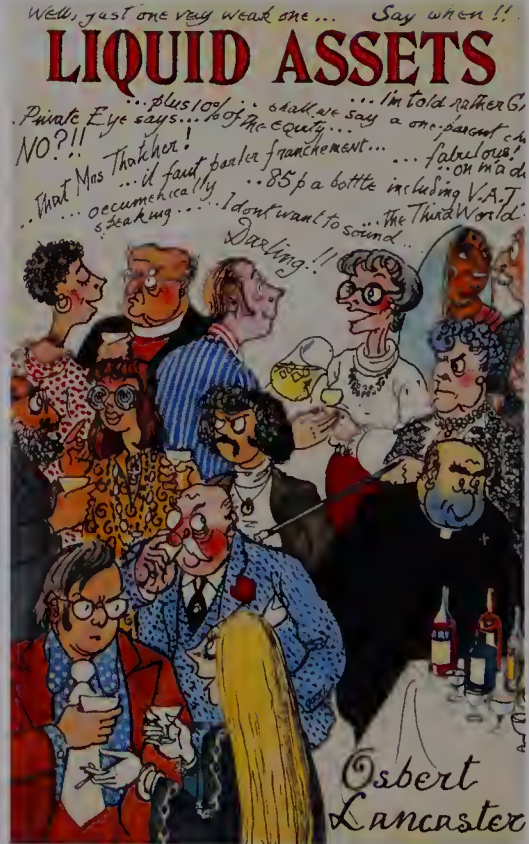 Well, just one very weak one... Say when!!
LIQUID ASSETS
...plus 10% of the equity... shall we say ... I'm told rather G
.Private Eye says... a one-parent
NO?!! ... fabulous!
That Mrs Thatcher! ... on m a d
...il faut parler franchement...
... oecumenically speaking..... ..85p a bottle including V.A.T.
...I dont want to sound... ...The Third World.
Darling!!
Osbert
Lancaster